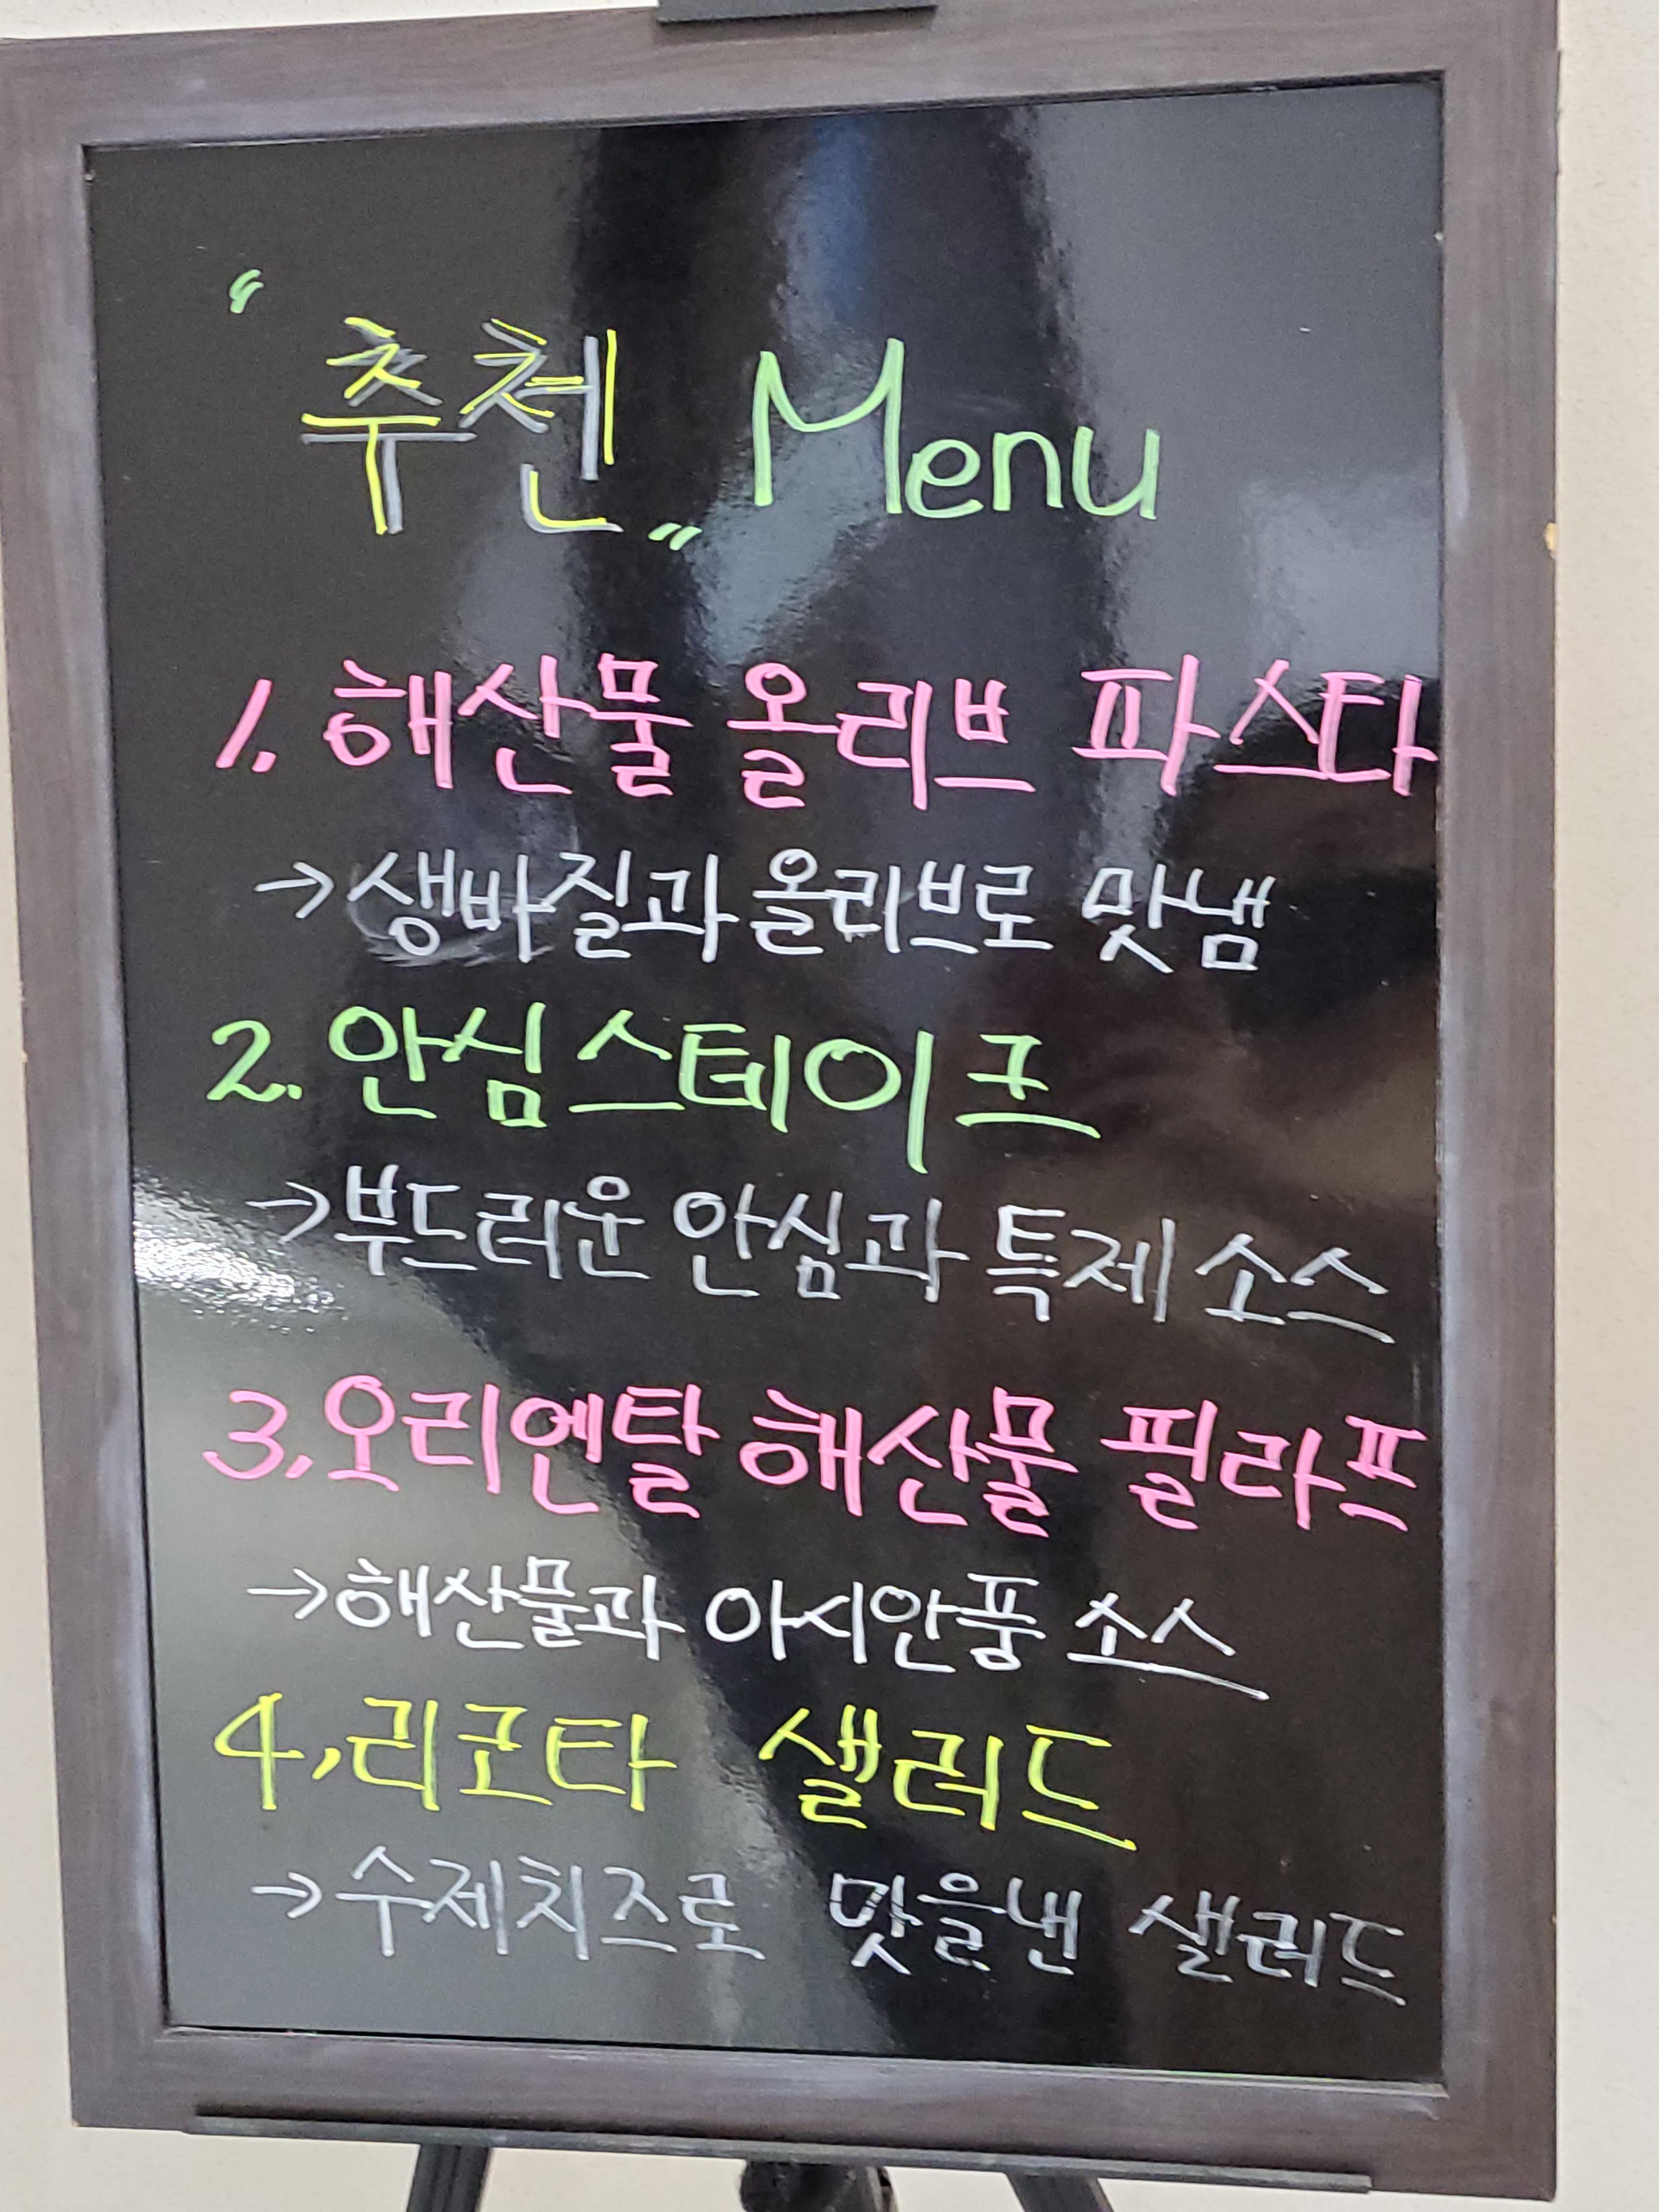 "추천" Menu
1. 해산물 올리브 파스타
→생바질과 올리브로 맛냄
2. 안심스테이크
→부드러운 안심과 특제 소스
3. 오리엔탈 해산물 필라프
→해산물과 아시안풍 소스
4, 리코타 샐러드
→수제치즈로 맛을낸 샐러드